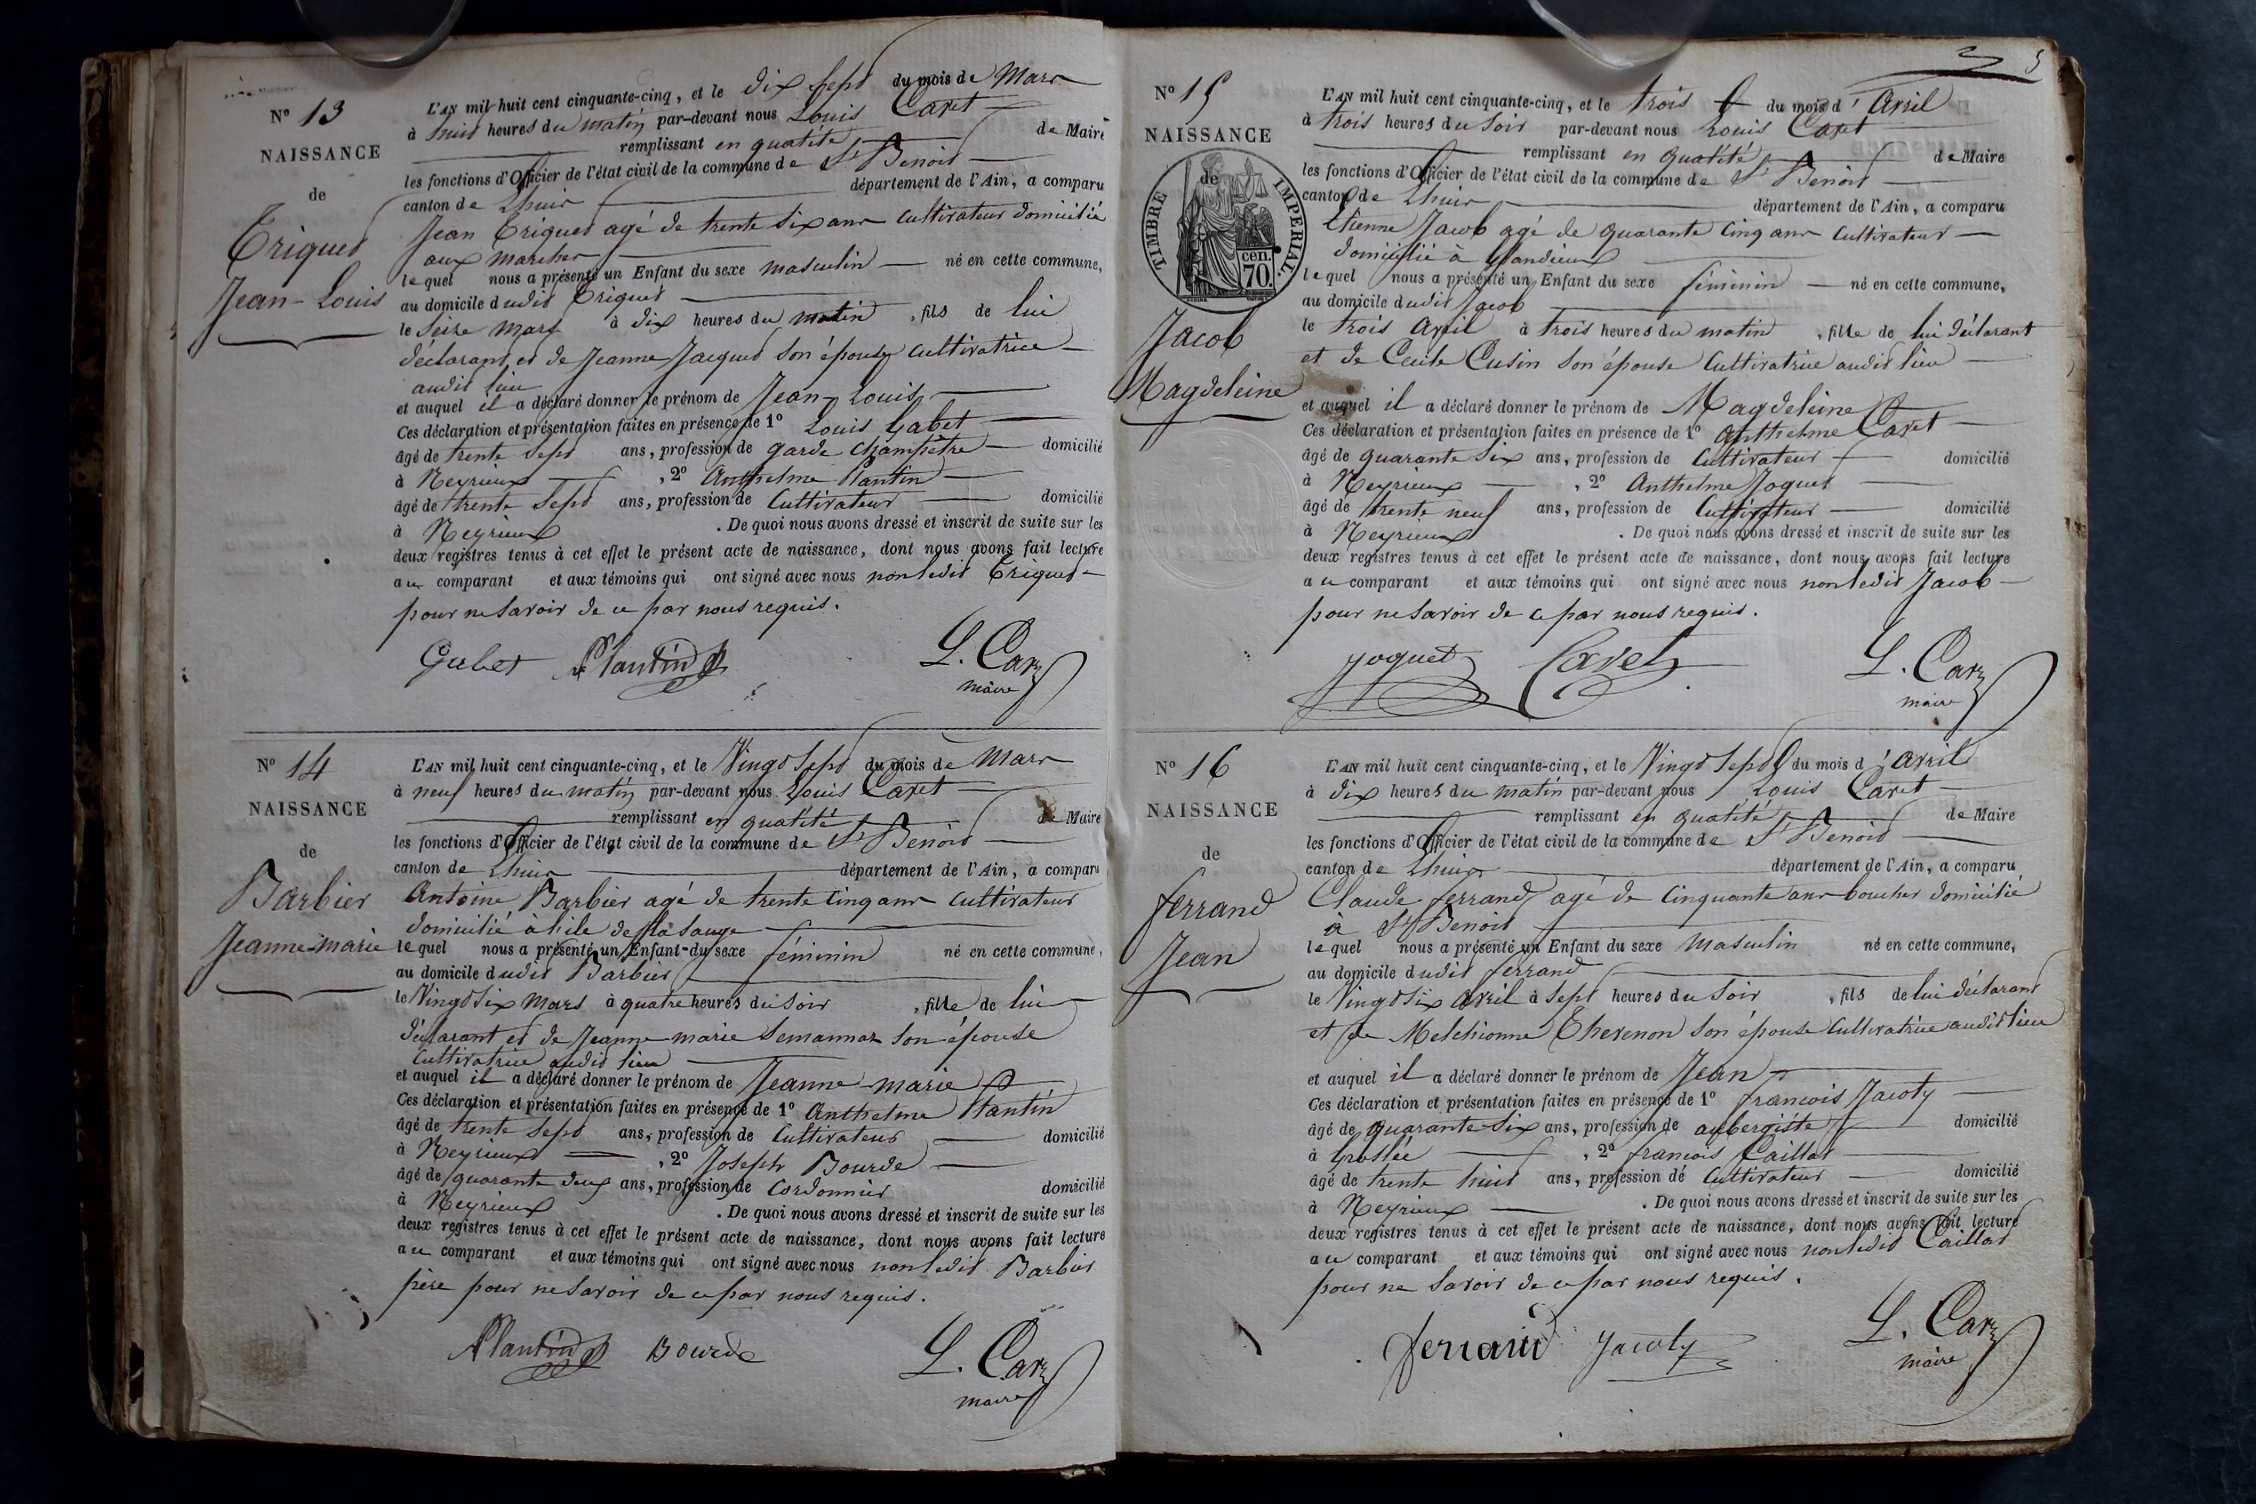 N° 13
NAISSANCE
de
Triquet
Jean-Louis
L'AN mil huit cent cinquante-cinq, et le dix sept du mois de Mars
à huit heures du matin par-devant nous Louis Caret
remplissant en qualité de Maire
les fonctions d'Officier de l'état civil de la commune de St Benoit
canton de Lhuis département de l'Ain, a comparu
Jean Triquet agé de trente six ans cultivateur domicilié
aux marches
lequel nous a présenté un Enfant du sexe masculin né en cette commune,
au domicile dudit Triquet
le seize mars à dix heures du matin, fils de lui
déclarant et de Jeanne Jacquet son épouse cultivatrice
audit lieu
et auquel il a déclaré donner le prénom de Jean-Louis
Ces déclaration et présentation faites en présence de 1° Louis Gabet
âgé de trente sept ans, profession de garde champêtre domicilié
à Neyrieux, 2° Anthelme Plantin
âgé de trente sept ans, profession de Cultivateur domicilié
à Neyrieux. De quoi nous avons dressé et inscrit de suite sur les
deux registres tenus à cet effet le présent acte de naissance, dont nous avons fait lecture
au comparant et aux témoins qui ont signé avec nous non ledit Triquet
pour ne savoir de ce par nous requis.
Gabet Plantin L. Caret
maire
N° 14
NAISSANCE
de
Barbier
Jeanne-marie
L'AN mil huit cent cinquante-cinq, et le Vingt sept du mois de Mars
à neuf heures du matin par-devant nous Louis Caret
remplissant en qualité de Maire
les fonctions d'Officier de l'état civil de la commune de St Benoit
canton de Lhuis département de l'Ain, a comparu
Antoine Barbier agé de trente cinq ans cultivateur
domicilié à
lequel nous a présenté un Enfant du sexe féminin né en cette commune,
au domicile dudit Barbier
le Vingt six mars à quatre heures du soir, fille de lui
déclarant et de Jeanne marie son épouse
Cultivatrice audit lieu
et auquel il a déclaré donner le prénom de Jeanne-marie
Ces déclaration et présentation faites en présence de 1° Anthelme Plantin
âgé de trente sept ans, profession de Cultivateur domicilié
à Neyrieux, 2° Joseph Bourde
âgé de quarante deux ans, profession de Cordonnier domicilié
à Neyrieux. De quoi nous avons dressé et inscrit de suite sur les
deux registres tenus à cet effet le présent acte de naissance, dont nous avons fait lecture
au comparant et aux témoins qui ont signé avec nous non ledit Barbier
père pour ne savoir de ce par nous requis.
Plantin Bourde L. Caret
maire
5
N° 15
NAISSANCE
de
TIMBRE IMPERIAL.
70. cen.
Jacob
Magdeleine
L'AN mil huit cent cinquante-cinq, et le trois du mois d'Avril
à trois heures du soir par-devant nous Louis Caret
remplissant en qualité de Maire
les fonctions d'Officier de l'état civil de la commune de St Benoit
canton de Lhuis département de l'Ain, a comparu
Etienne Jacob agé de quarante cinq ans cultivateur
domicilié à Glandieux
lequel nous a présenté un Enfant du sexe féminin né en cette commune,
au domicile dudit Jacob
le trois Avril à trois heures du matin, fille de lui déclarant
et de Cecile Cusin son épouse Cultivatrice audit lieu
et auquel il a déclaré donner le prénom de Magdeleine
Ces déclaration et présentation faites en présence de 1° Anthelme Caret
âgé de quarante six ans, profession de Cultivateur domicilié
à Neyrieux, 2° Anthelme Joquet
âgé de trente neuf ans, profession de Cultivateur domicilié
à Neyrieux. De quoi nous avons dressé et inscrit de suite sur les
deux registres tenus à cet effet le présent acte de naissance, dont nous avons fait lecture
au comparant et aux témoins qui ont signé avec nous non ledit Jacob
pour ne savoir de ce par nous requis.
Joquet Caret L. Caret
maire
N° 16
NAISSANCE
de
ferrand
Jean
L'AN mil huit cent cinquante-cinq, et le Vingt sept du mois d'avril
à dix heures du matin par-devant nous Louis Caret
remplissant en qualité de Maire
les fonctions d'Officier de l'état civil de la commune de St Benoit
canton de Lhuis département de l'Ain, a comparu
Claude ferrand agé de cinquante ans boucher domicilié
à St Benoit
lequel nous a présenté un Enfant du sexe Masculin né en cette commune,
au domicile dudit ferrand
le Vingt six avril à sept heures du soir, fils de lui déclarant
et de Melchionne Thevenon son épouse Cultivatrice audit lieu
et auquel il a déclaré donner le prénom de Jean
Ces déclaration et présentation faites en présence de 1° francois Jacoly
âgé de quarante six ans, profession de aubergiste domicilié
à Groslée, 2° francois Caillat
âgé de trente huit ans, profession de Cultivateur domicilié
à Neyrieux. De quoi nous avons dressé et inscrit de suite sur les
deux registres tenus à cet effet le présent acte de naissance, dont nous avons fait lecture
au comparant et aux témoins qui ont signé avec nous non ledit Caillat
pour ne savoir de ce par nous requis.
ferrand Jacoly L. Caret
maire